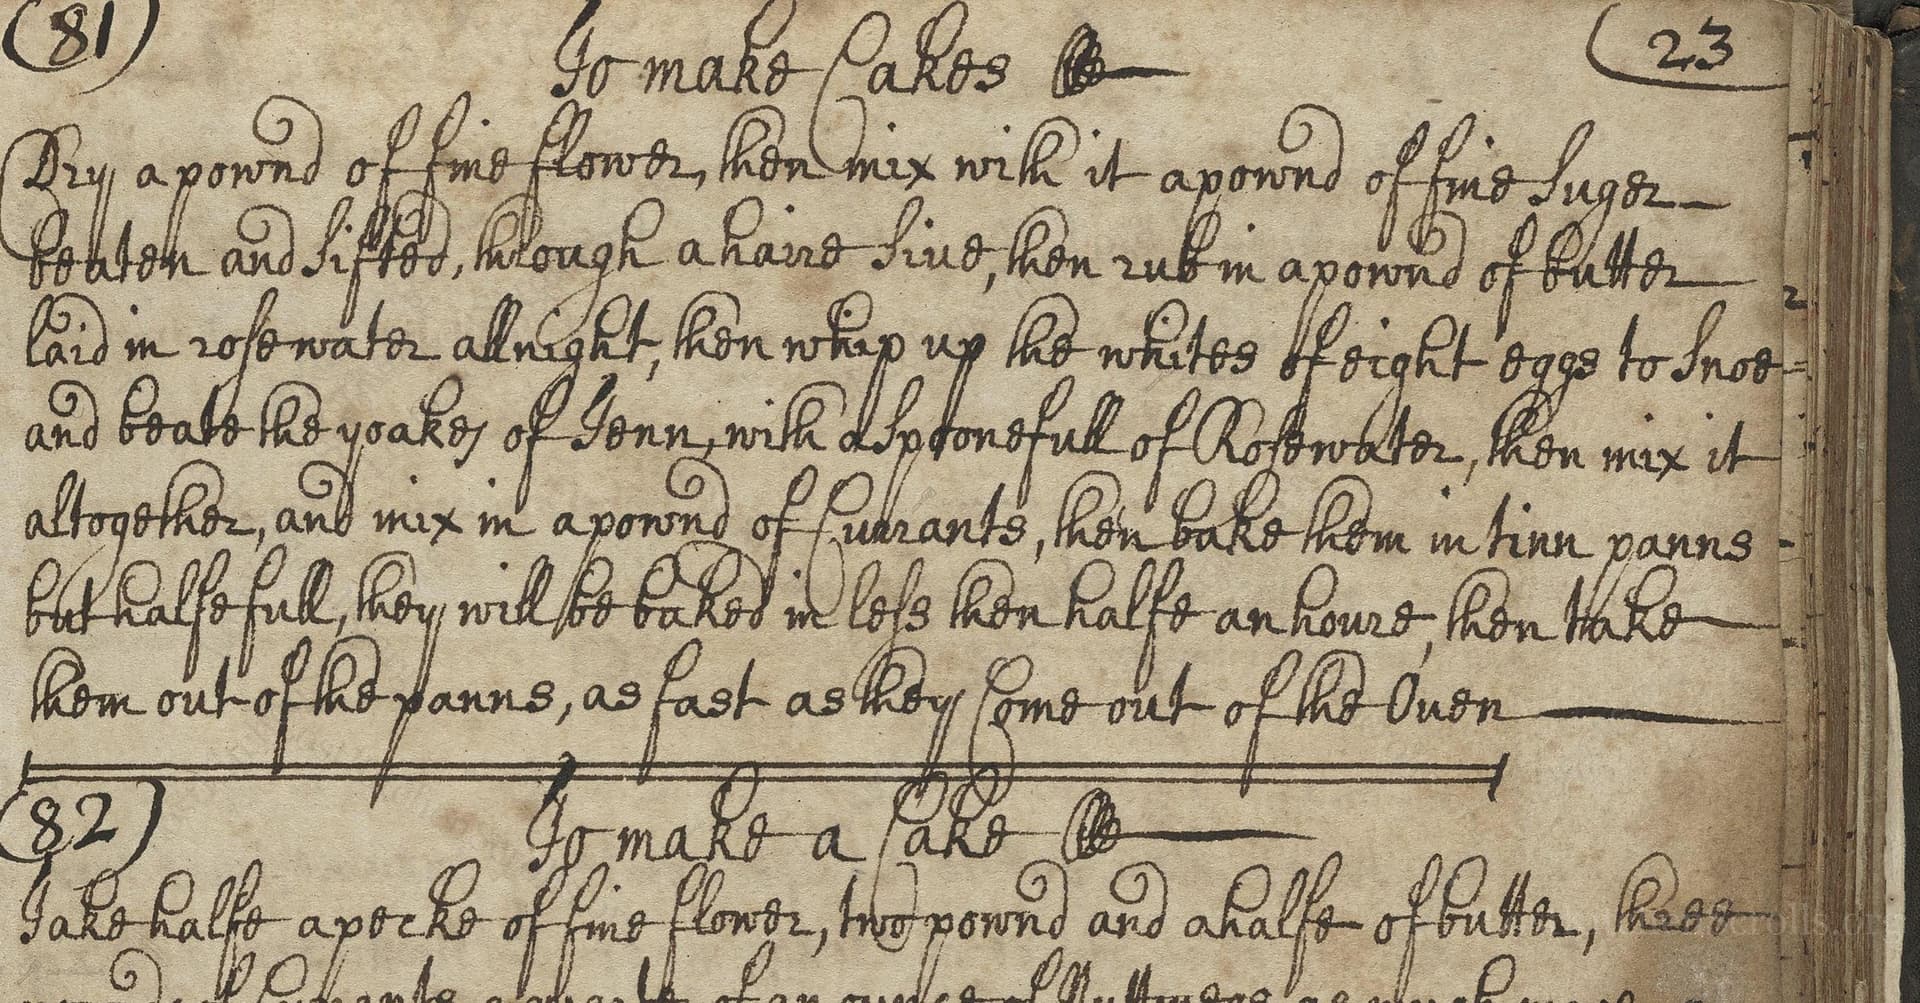 (81)
To make Cakes
23
Dry a pownd of fine flower, then mix with it a pownd of fine Suger
beaten and Sifted, through a haire Sive, then rub in a pownd of butter
laid in rosewater all night, then whip up the whites of eight eggs to Snoe
and beate the yoakes of Tenn, with a Spoonefull of Rosewater, then mix it
altogether, and mix in a pownd of Currants, then bake them in tinn panns
but halfe full, they will be baked in less then halfe an houre, then take
them out of the panns, as fast as they Come out of the Oven
(82)
To make a Cake
Take halfe a pecke of fine flower, two pownd and a halfe of butter, three
of Currants a quarter of an ounce of Nuttmegs as much mace